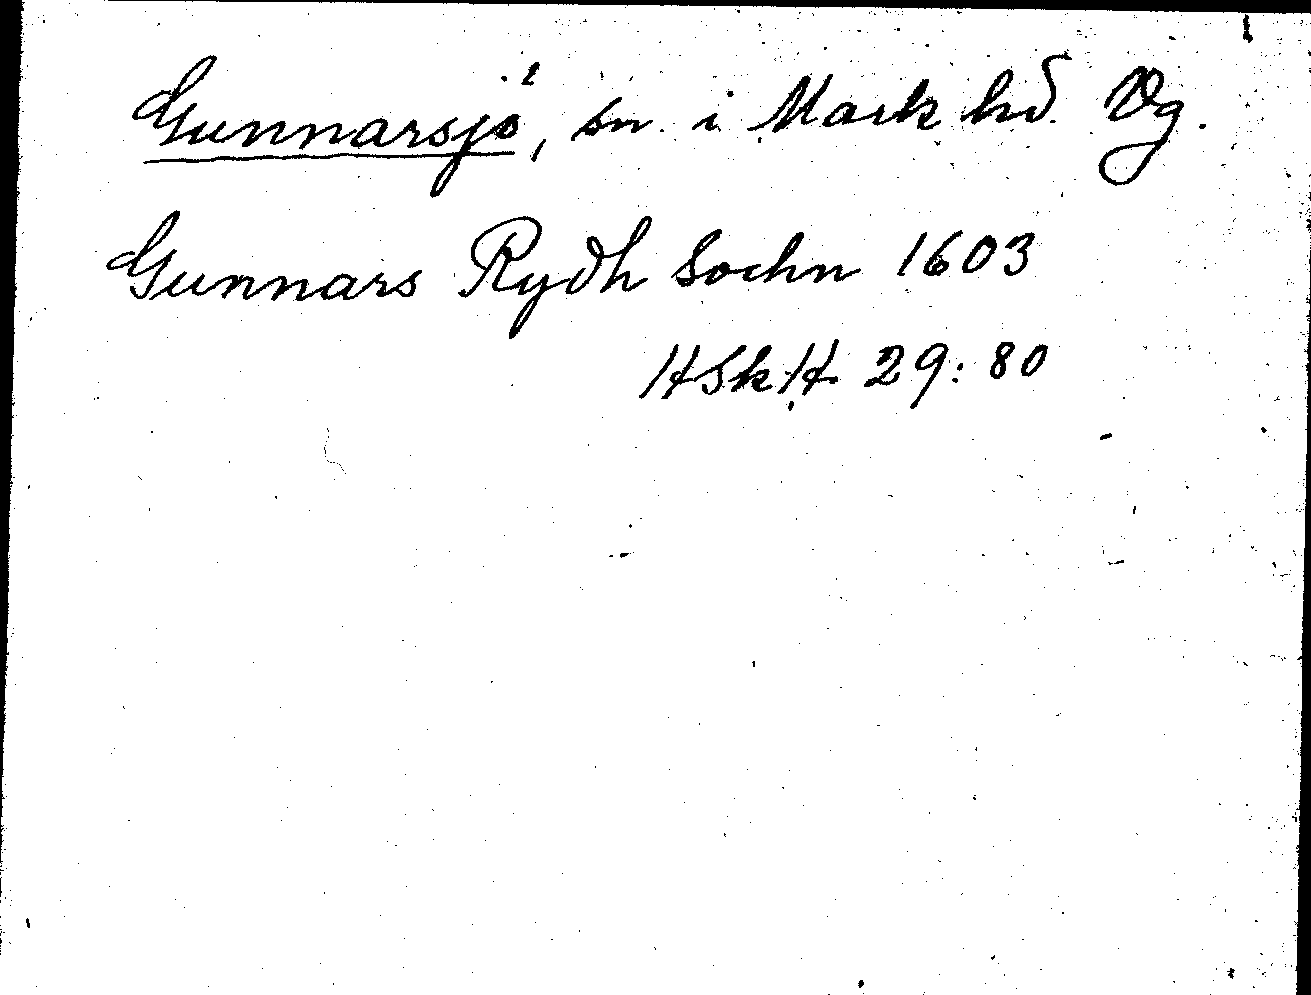 Gunnarsjö, sn. i Mark hd. Vg.
Gunnars Rydh Sochn 1603
HSkH. 29:80